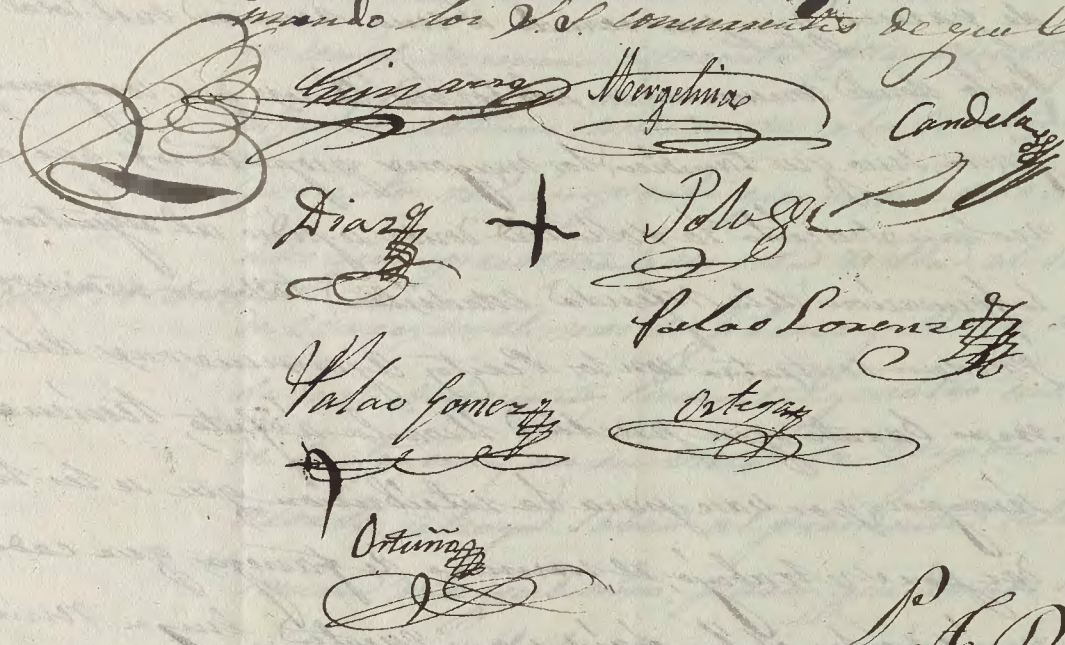 mando los S.S. concurrentes de que
Mergelina
Candela
Diaz
Polo
Palao Lorenzo
Palao Gomez
Ortega
Ortuño